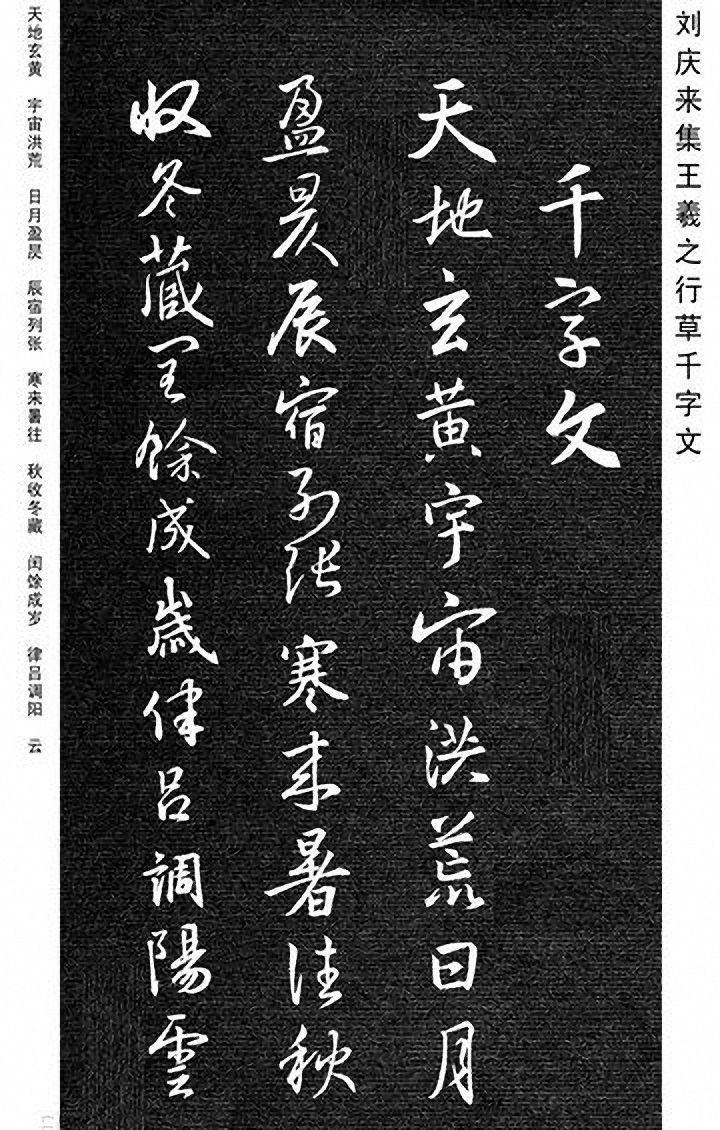 刘庆来集王羲之行草千字文
千字文
天地玄黄宇宙洪荒日月
盈昃辰宿列张寒来暑往秋
收冬藏闰馀成歳律吕調陽雲
天地玄黄 宇宙洪荒 日月盈昃 辰宿列张 寒来暑往 秋收冬藏 闰馀成岁 律吕调阳 云